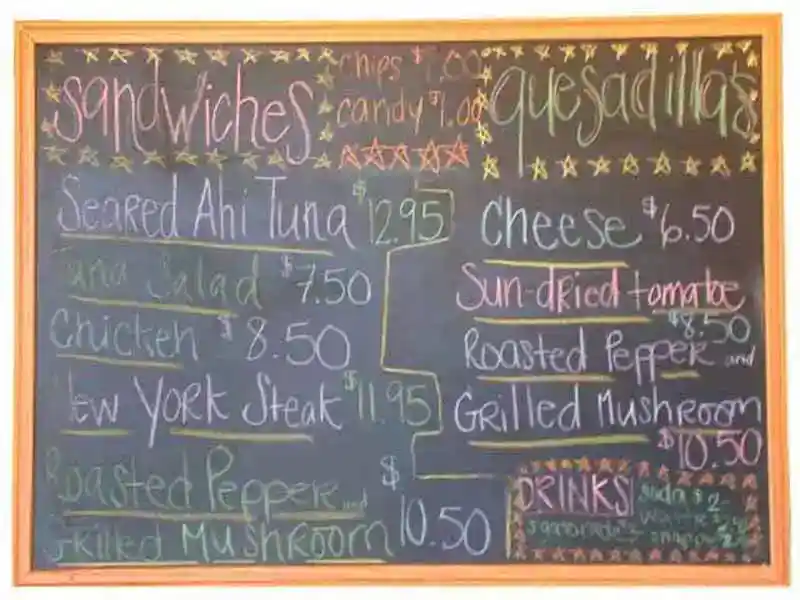 sandwiches
chips $1.00
candy $1.00
Seared Ahi Tuna $12.95
Tuna Salad $7.50
Chicken $8.50
New York Steak $11.95
Roasted Pepper and
Grilled Mushroom $10.50
quesadillas
Cheese $6.50
Sun-dried tomatoe
$8.50
Roasted Pepper and
Grilled Mushroom
$10.50
DRINKS
soda $2